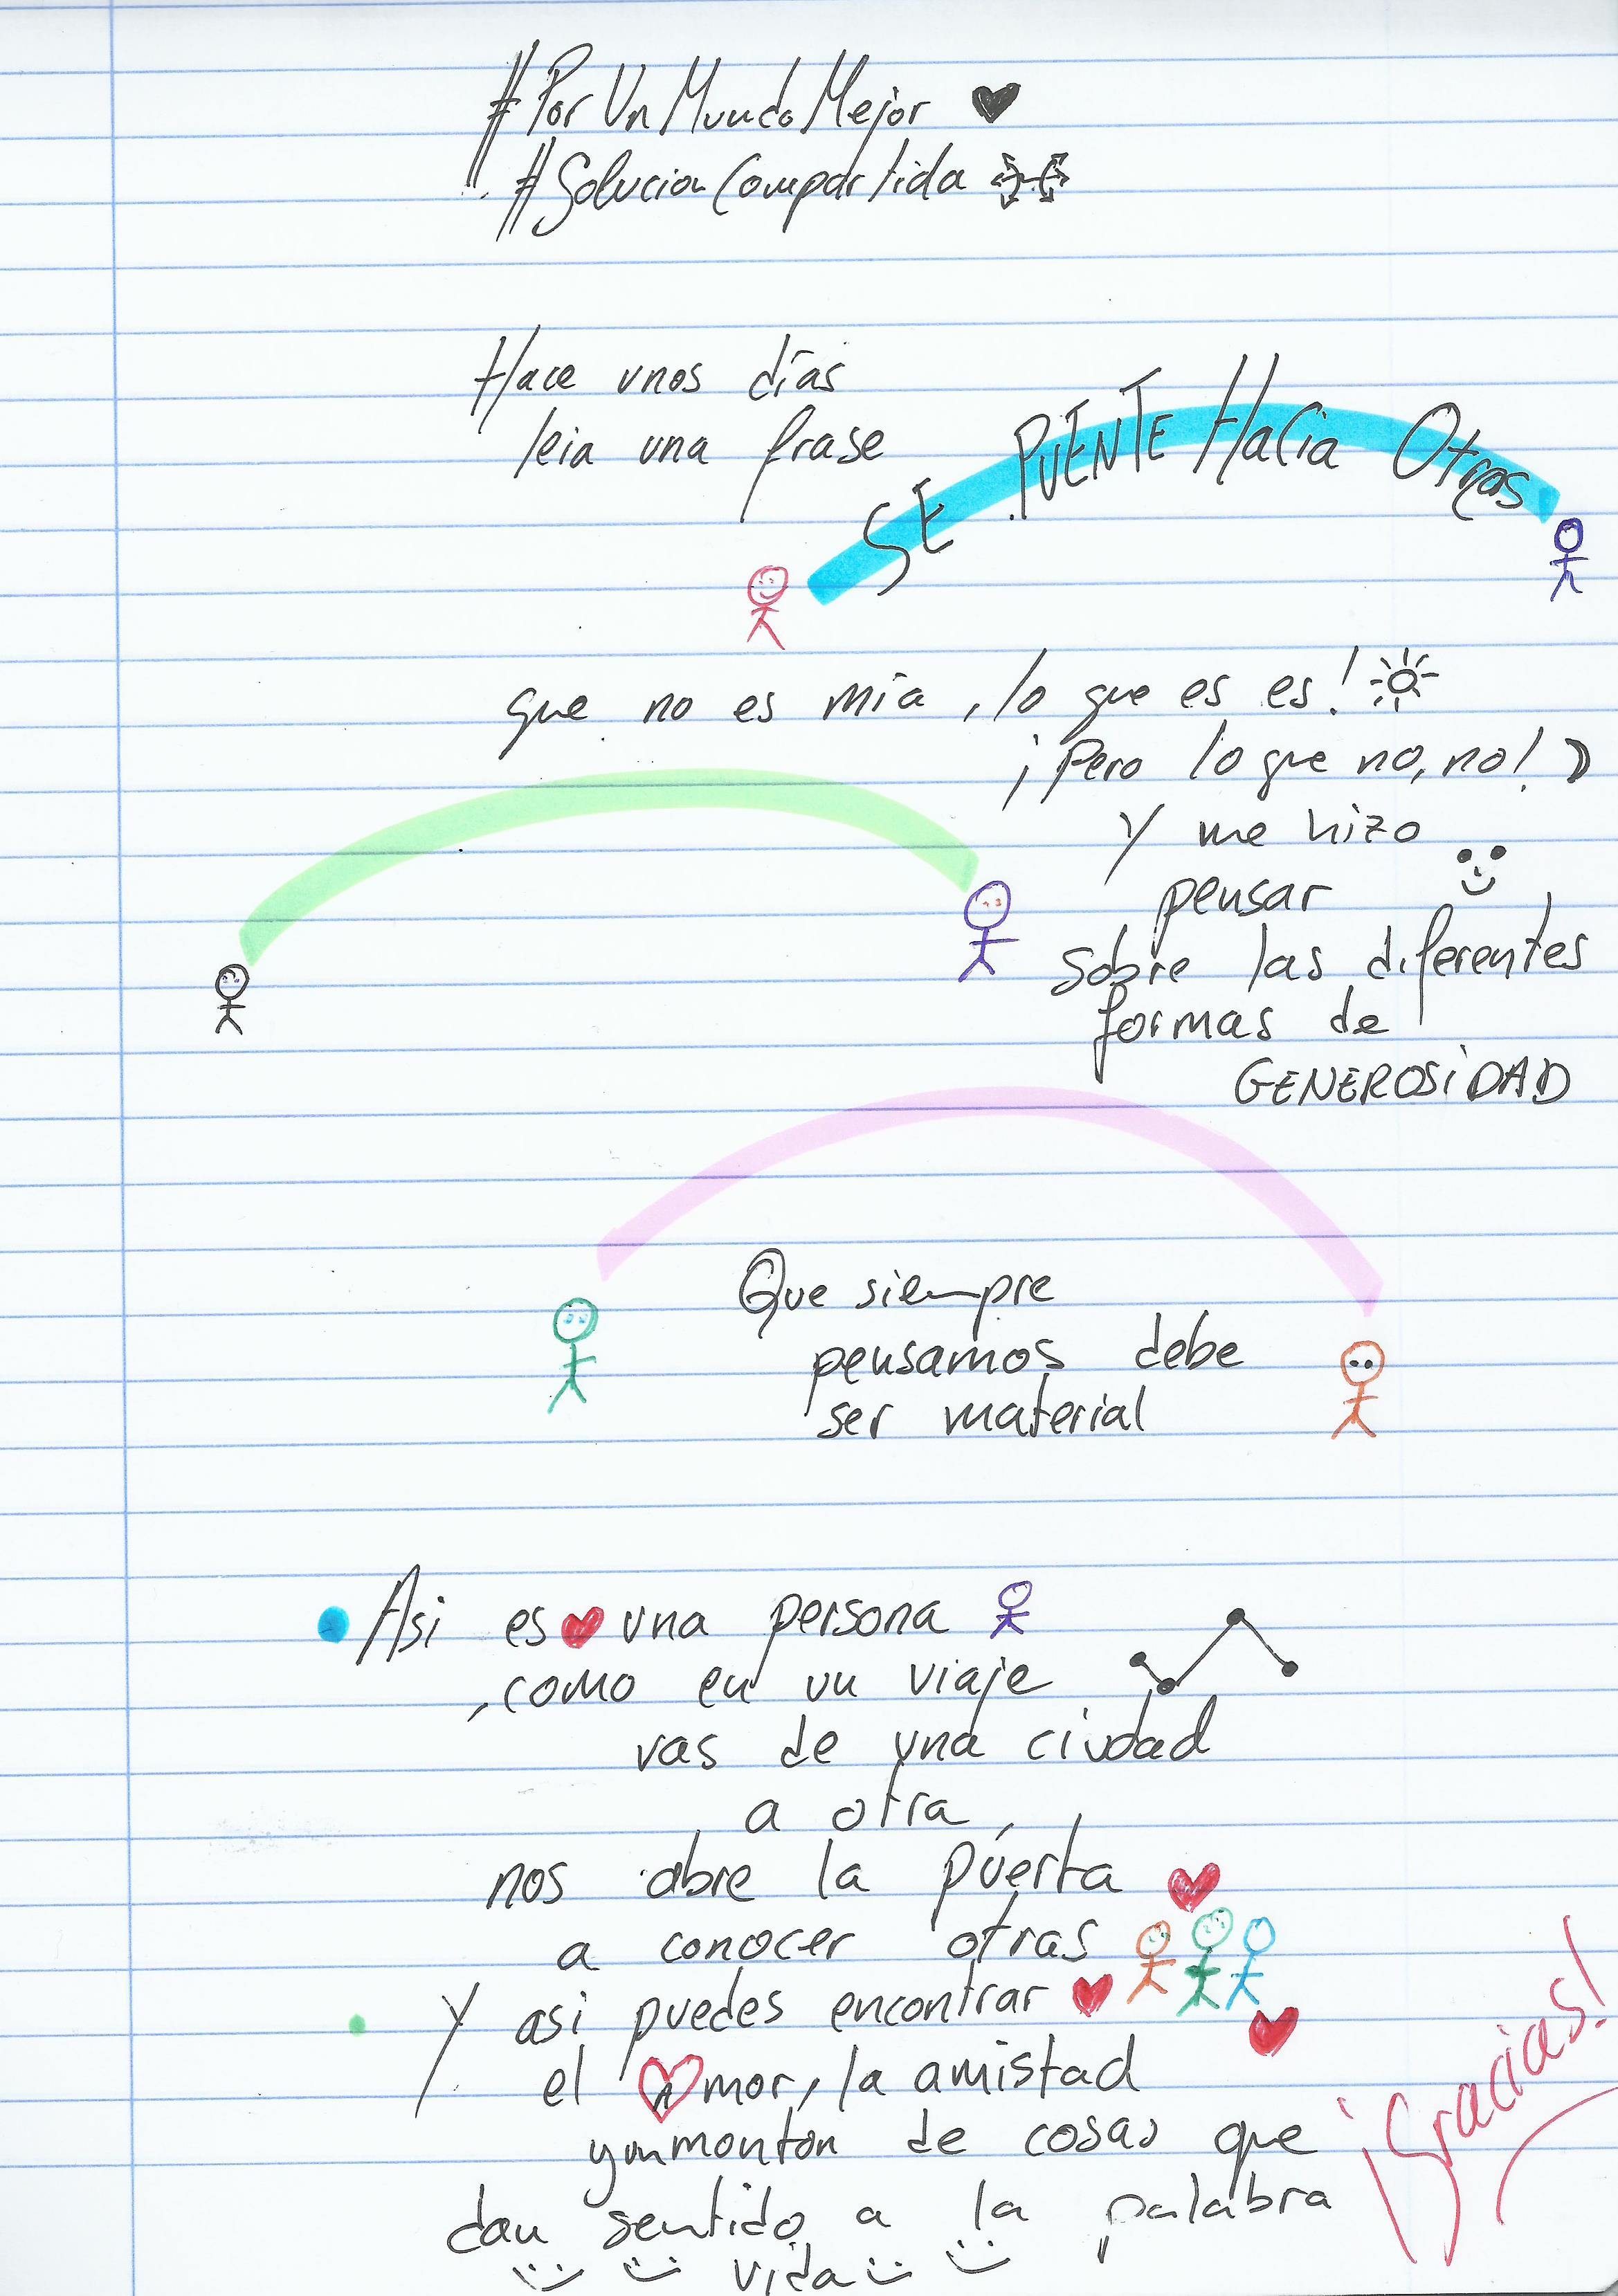 #PorUnMundoMejor
#SolucionCompartida
Hace unos días
leia una frase
SE PUENTE Hacia Otros
que no es mía, lo que es es!
¡Pero lo que no, no!
Y me hizo
pensar
sobre las diferentes
formas de
GENEROSiDAD
Que siempre
pensamos debe
ser material
Asi es una persona
, como en un viaje
vas de una ciudad
a otra,
nos abre la puerta
a conocer otras
Y asi puedes encontrar
el Amor, la amistad
y un monton de cosas que
dan sentido a la palabra
vida
¡Gracias!